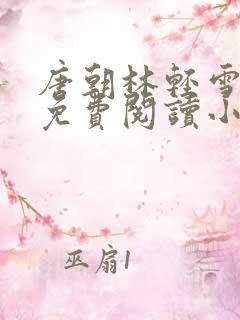 唐朝林輕雪
免費閱讀小
巫扇1